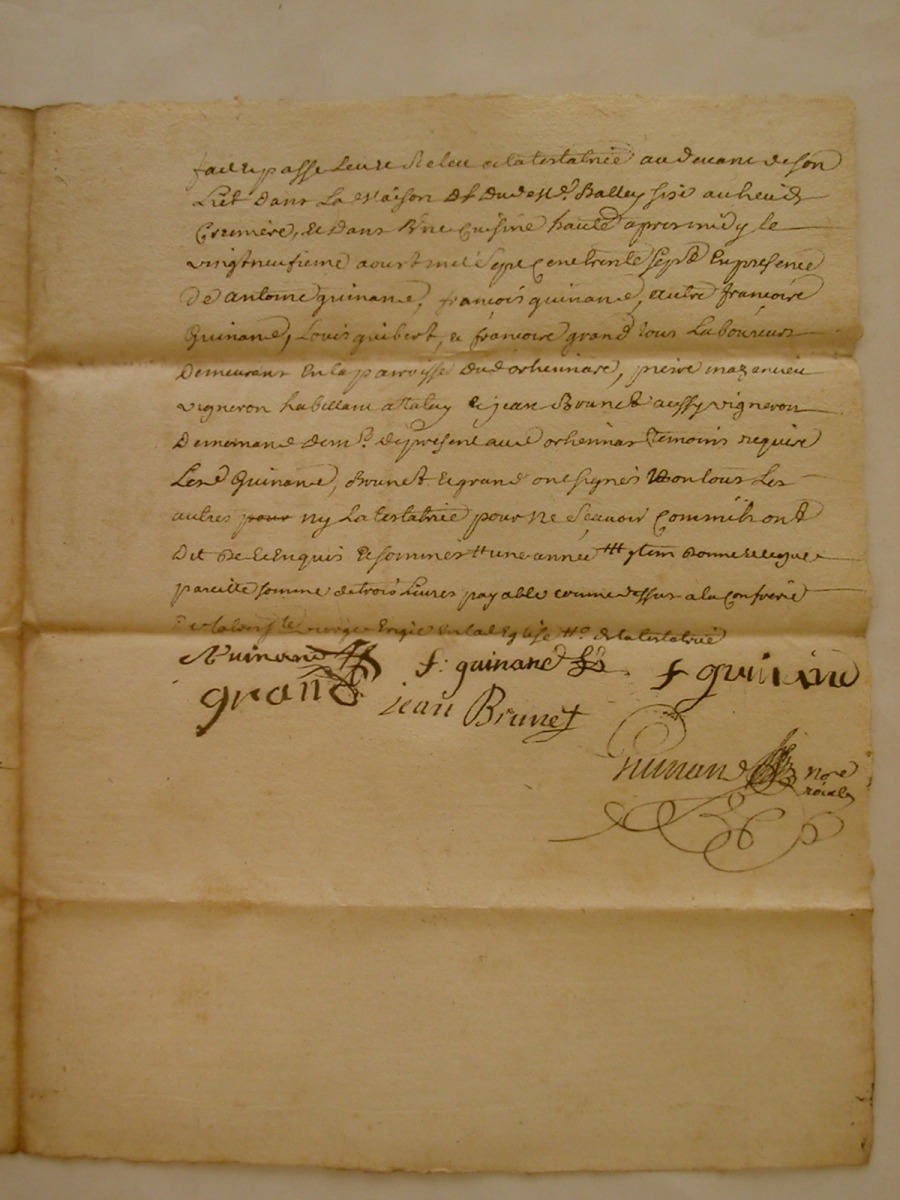 fait et passé leu et releu a la testatrice au devant de son
Lict dans La Maison Dud. Balley sise au lieu de
Crumière, et dans Une cuisine haute apres midy le
vingt neufieme aoust mil sept cent trente sept En presence
De antoine guinand, francois guinand, autre francois
Guinand, Louis guibert, et francois grand tous Laboureurs
Demeurant En la parroisse dud orliennas, pierre mazencieu
vigneron habittant a Taluy et jean Brunet aussy vigneron
De present aud orliennas temoins requis
Lesd Guinand, Brunet et grand ont signés Non tous Les
autres pour ny La testatrice pour ne scavoir Comm'ils ont
Dit De ce Enquis et sommés # une année ### ytem Donne et legue
pareille somme de trois Livres payable comme dessus a la confrerie
vierge Erigée En lad Eglise de la testatrice
Guinand f: guinand f guinand
grand jean Brunet
Guinand no.re
roial